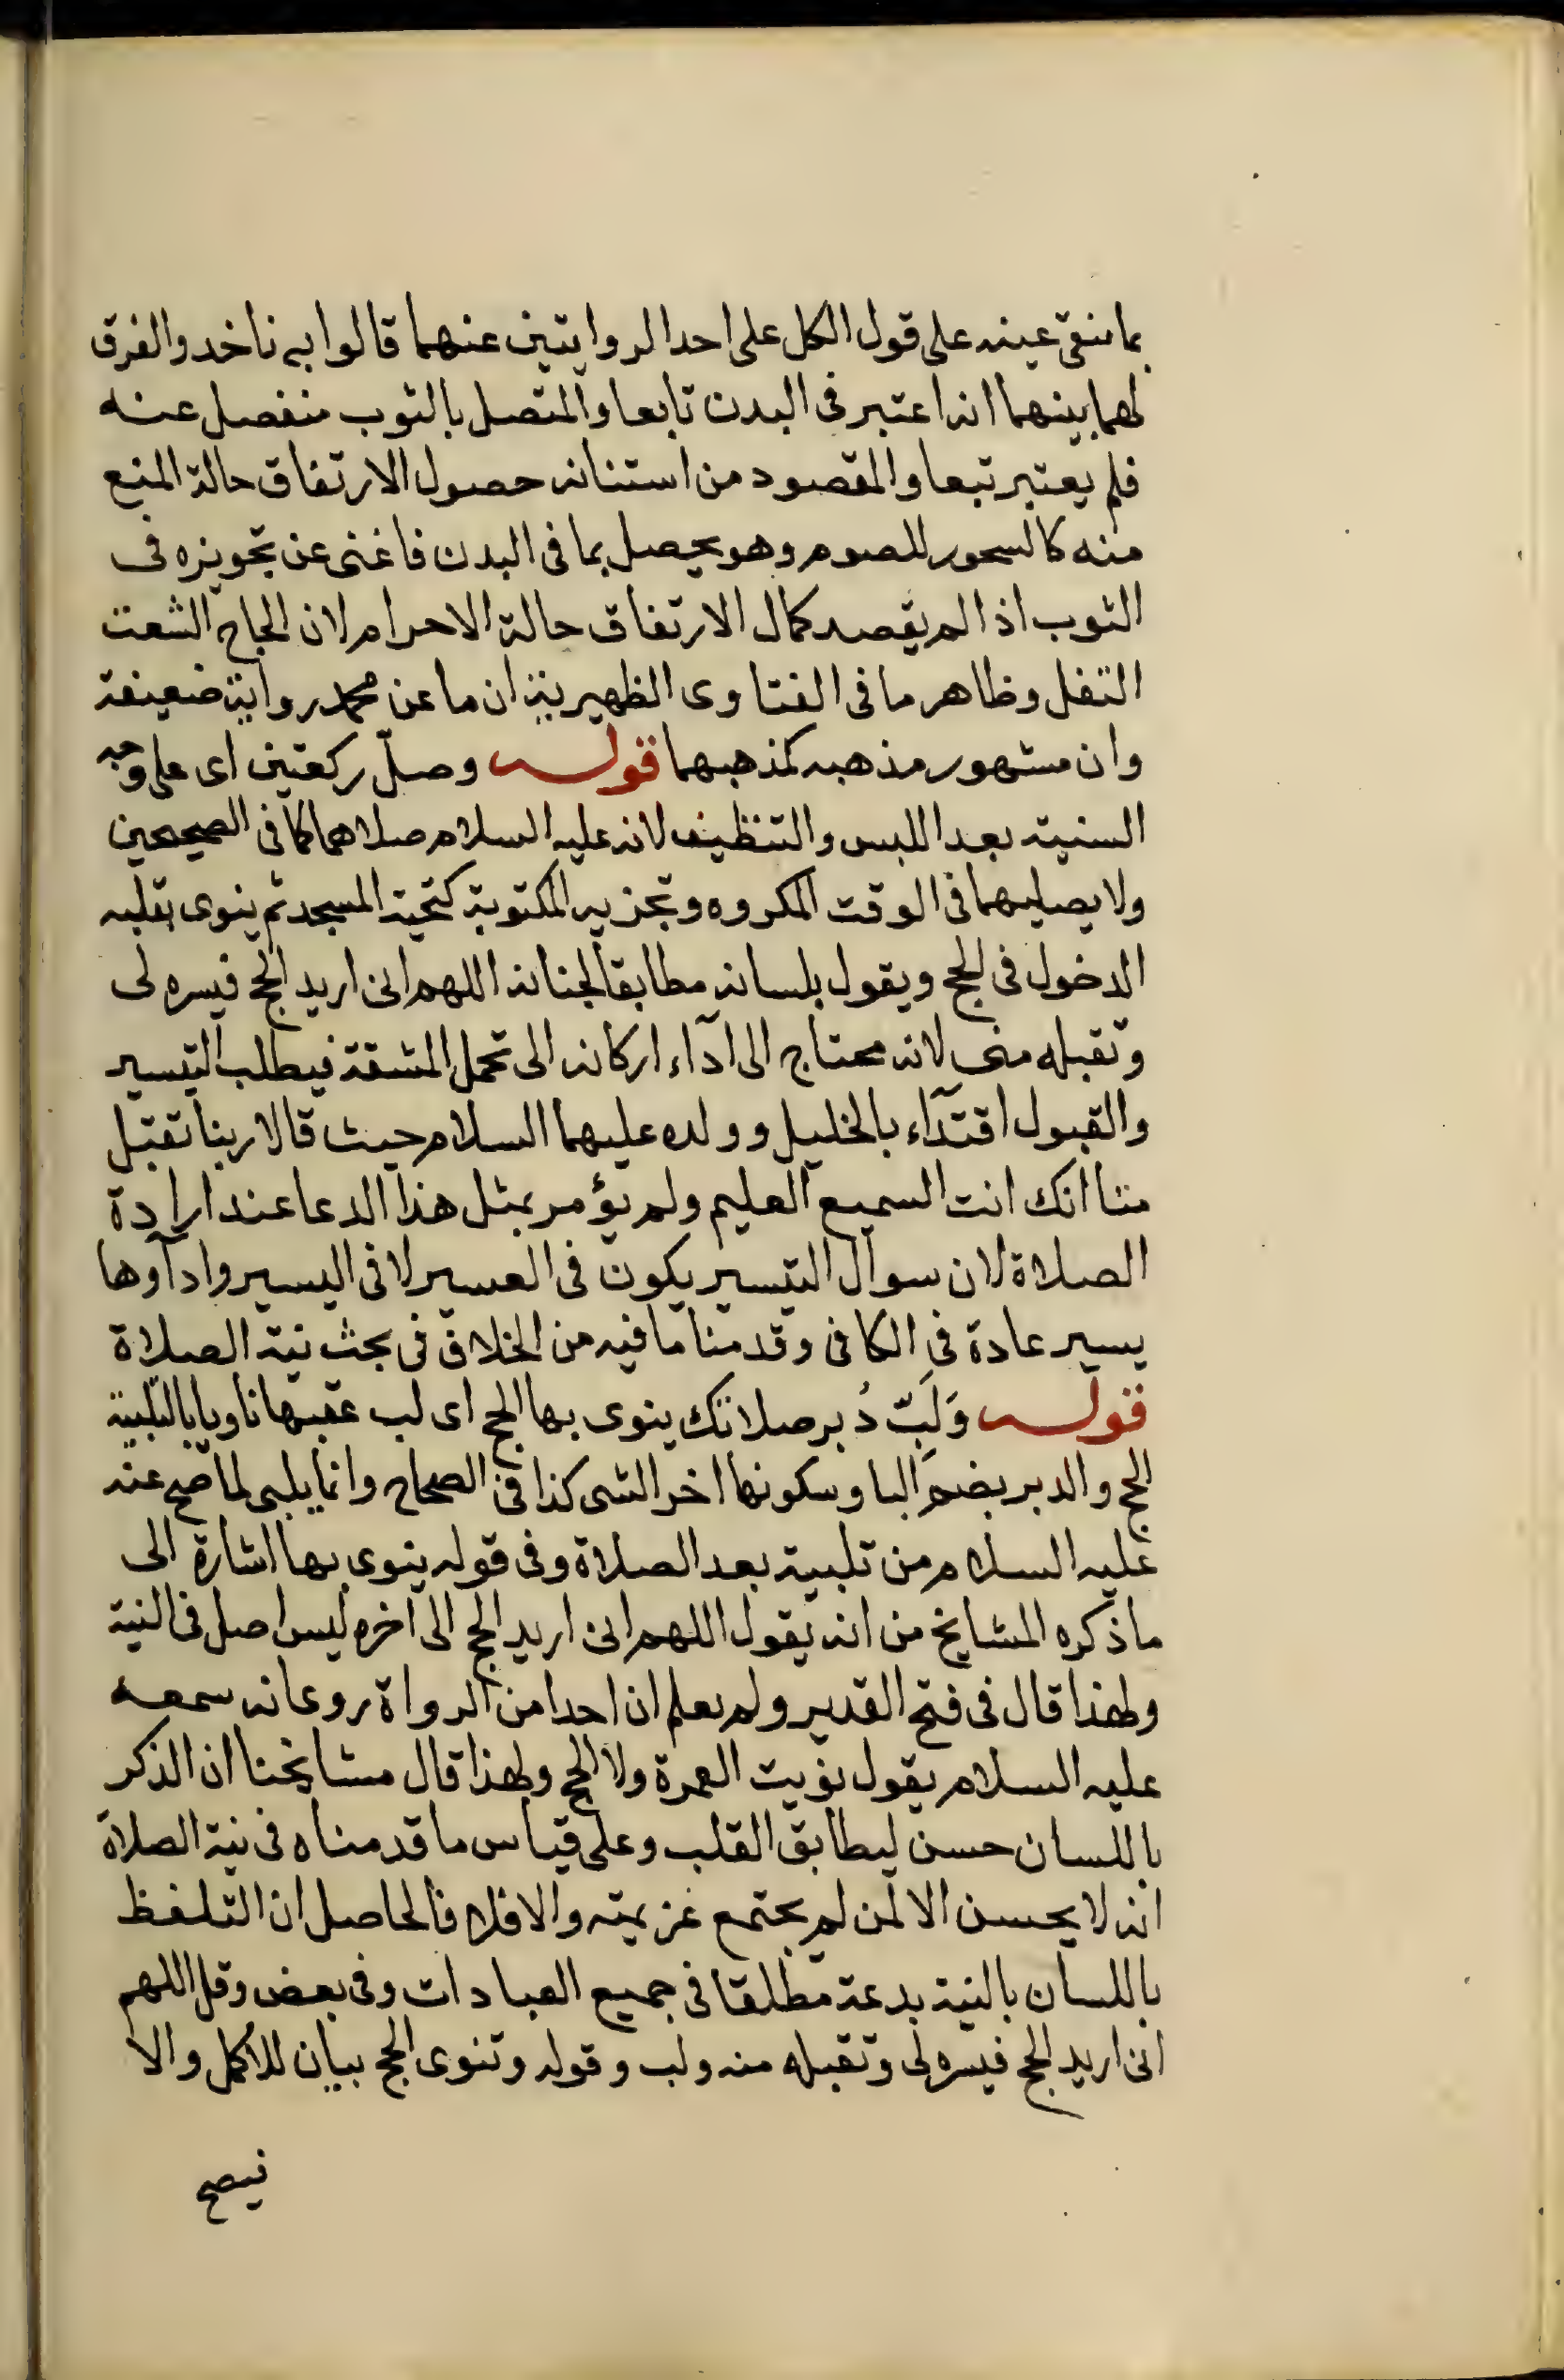 بما تبقى عينه على قول الكل على احدا لروايتين عنهما قالوا به ناخد والفرق
لهما بينهما انه اعتبر فى البدن تابعا والمتصل بالثوب منفصل عنه
فلم يعتبر تبعا والمقصود من استنانه حصول الارتفاق حالة المنع
منه كالسحور للصوم وهو يحصل بما فى البدن فاغنى عن تجويزه فى
الثوب اذا لم يقصد كمال الارتفاق حالة الاحرام لان الحاج الشعث
التفل وظاهر ما فى الفتاوى الظهيرية ان ما عن محمد رواية ضعيفة
وان مشهور مذهبه كمذهبهما قوله وصلّ ركعتين اى على وجه
السنية بعد اللبس والتنظيف لانه عليه السلام صلاهما كما فى الصحيحين
ولا يصليهما فى الوقت المكروه وتجزيه المكتوبة كتحية المسجد ثم ينوى بقلبه
الدخول فى الحج ويقول بلسانه مطابقا لجنانه اللهم انى اريد الحج فيسره لى
وتقبله منى لانه محتاج الى آداء اركانه الى تحمل المشقة فيطلب التيسير
والقبول اقتدآء بالخليل وولده عليهما السلام حيث قالا ربنا تقبل
منا انك انت السميع العليم ولم يؤمر بمثل هذا الدعا عند ارادة
الصلاة لان سوال التيسير يكون فى العسير لا فى اليسير وادآوها
يسير عادة فى الكافى وقدمنا ما فيه من الخلاف فى بحث نية الصلاة
قوله وَلَبِّ دُبر صلاتك ينوى بها الحج اى لب عقبها ناويا بالتلبية
الحج والدبر بضم البا وسكونها اخر الشى كذا فى الصحاح وانما يلبى لما صح عنه
عليه السلام من تلبيته بعد الصلاة وفى قوله ينوى بها اشارة الى
ماذكره المشايخ من انه يقول اللهم انى اريد الحج الى اخره ليس اصل فى النية
ولهذا قال فى فتح القدير ولم يعلم ان احدا من الرواة روعانه سمعه
عليه السلام يقول نويت العمرة ولا الحج ولهذا قال مشايخنا ان الذكر
باللسان حسن ليطابق القلب وعلى قياس ما قدمناه فى نية الصلاة
انه لا يحسن الا لمن لم يجتمع عزيمته والا فلا فالحاصل ان التلفظ
باللسان بالنية بدعة مطلقا فى جميع العبادات وفى بعض وقل اللهم
انى اريد الحج فيسره لى وتقبله منه ولب وقوله وتنوى الحج بيان للاكمل والا
فيصح